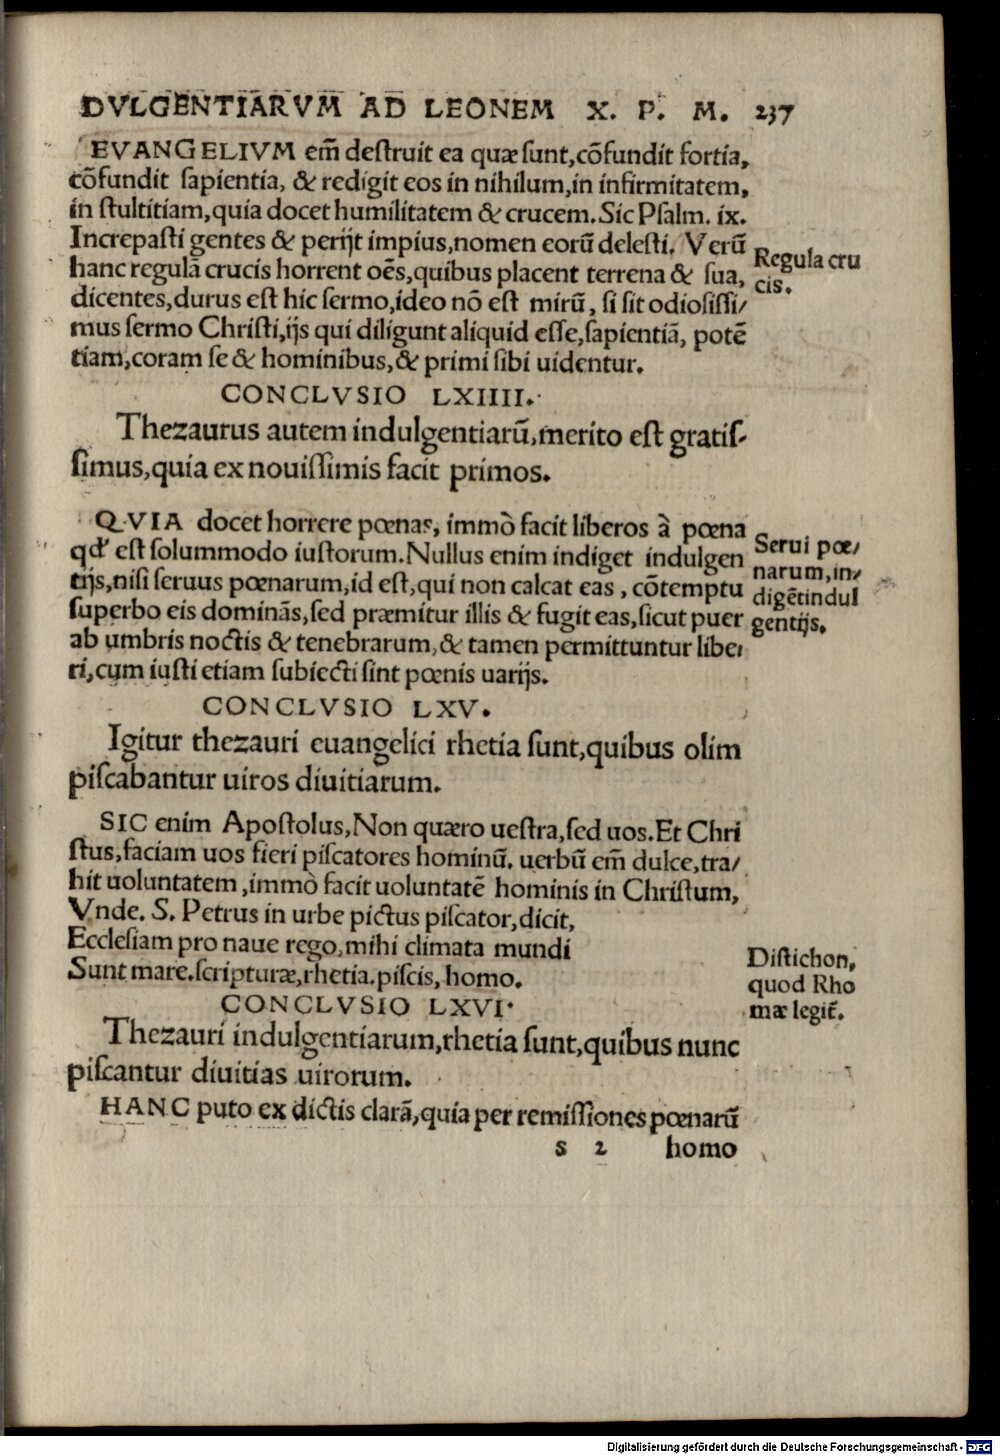 DVLGENTIARVM AD LEONEM X. P. M. 237
EVANGELIVM em̃ deſtruit ea quæ ſunt,cõfundit fortia,
cõfundit ſapientia, & redigit eos in nihilum,in infirmitatem,
in ſtultitiam,quia docet humilitatem & crucem.Sic Pſalm. ix.
Increpaſti gentes & perijt impius,nomen eorũ deleſti. Verũ
hanc regulã crucis horrent oẽs,quibus placent terrena & ſua,
dicentes,durus eſt hic ſermo,ideo nõ eſt mirũ, ſi ſit odioſiſſi/
mus ſermo Chriſti,ijs qui diligunt aliquid eſſe,ſapientiã, potẽ
tiam,coram ſe & hominibus,& primi ſibi uidentur.
Regula cru
cis.
CONCLVSIO LXIIII.
Thezaurus autem indulgentiarũ,merito eſt gratiſ-
ſimus,quia ex nouiſſimis facit primos.
QVIA docet horrere pœnas, immò facit liberos à pœna
qđ eſt ſolummodo iuſtorum.Nullus enim indiget indulgen
tijs,niſi ſeruus pœnarum,id eſt,qui non calcat eas, cõtemptu
ſuperbo eis dominãs,ſed præmitur illis & fugit eas,ſicut puer
ab umbris noctis & tenebrarum,& tamen permittuntur libe/
ri,cum iuſti etiam ſubiecti ſint pœnis uarijs.
Serui pœ/
narum,in/
digẽt indul
gentijs.
CONCLVSIO LXV.
Igitur thezauri euangelici rhetia ſunt,quibus olim
piſcabantur uiros diuitiarum.
SIC enim Apoſtolus,Non quæro ueſtra,ſed uos.Et Chri
ſtus,faciam uos fieri piſcatores hominũ. uerbũ em̃ dulce,tra/
hit uoluntatem,immò facit uoluntatẽ hominis in Chriſtum,
Vnde. S. Petrus in urbe pictus piſcator,dicit,
Eccleſiam pro naue rego,mihi climata mundi
Sunt mare.ſcripturæ,rhetia.piſcis, homo.
Diſtichon,
quod Rho
mæ legit̃.
CONCLVSIO LXVI.
Thezauri indulgentiarum,rhetia ſunt,quibus nunc
piſcantur diuitias uirorum.
HANC puto ex dictis clarã,quia per remiſſiones pœnarũ
s 2 homo
Digitalisierung gefördert durch die Deutsche Forschungsgemeinschaft - DFG